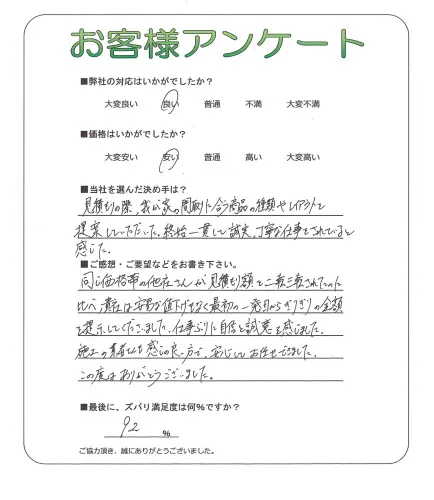 お客様アンケート
■弊社の対応はいかがでしたか?
大変良い 良い 普通 不満 大変不満
■価格はいかがでしたか?
大変安い 安い 普通 高い 大変高い
■当社を選んだ決め手は?
見積もりの際、我が家の間取りに合う商品の種類やレイアウトを
提案していただいた。終始一貫して誠実、丁寧な仕事をされていると
感じた。
■ご感想・ご要望などをお書き下さい。
同じ価格帯の他社さんが見積もり額を二転三転されていたのに
比べ、貴社は安易な値下げもなく最初の一発目からぎりぎりの金額
を提示してくださいました。仕事ぶりに自信と誠意を感じました。
施工の業者さんも感じの良い方で、安心してお任せできました。
この度はありがとうございました。
■最後に、ズバリ満足度は何%ですか?
92 %
ご協力頂き、誠にありがとうございました。